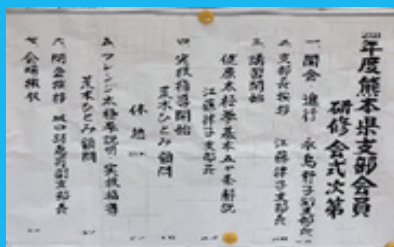 年度熊本県支部会員
研修会式次第
一 開会 進行 永島野子副支部長
二 支部長挨拶 江藤律子支部長
三 講習開始
健康太極拳基本五ヶ条解説
江藤律子支部長
四 実技指導開始
荒木ひとみ顧問
休憩
五 フレンジ太極拳説明・実技指導
荒木ひとみ顧問
六 閉会挨拶 坂口 副支部長
七 会場撤収